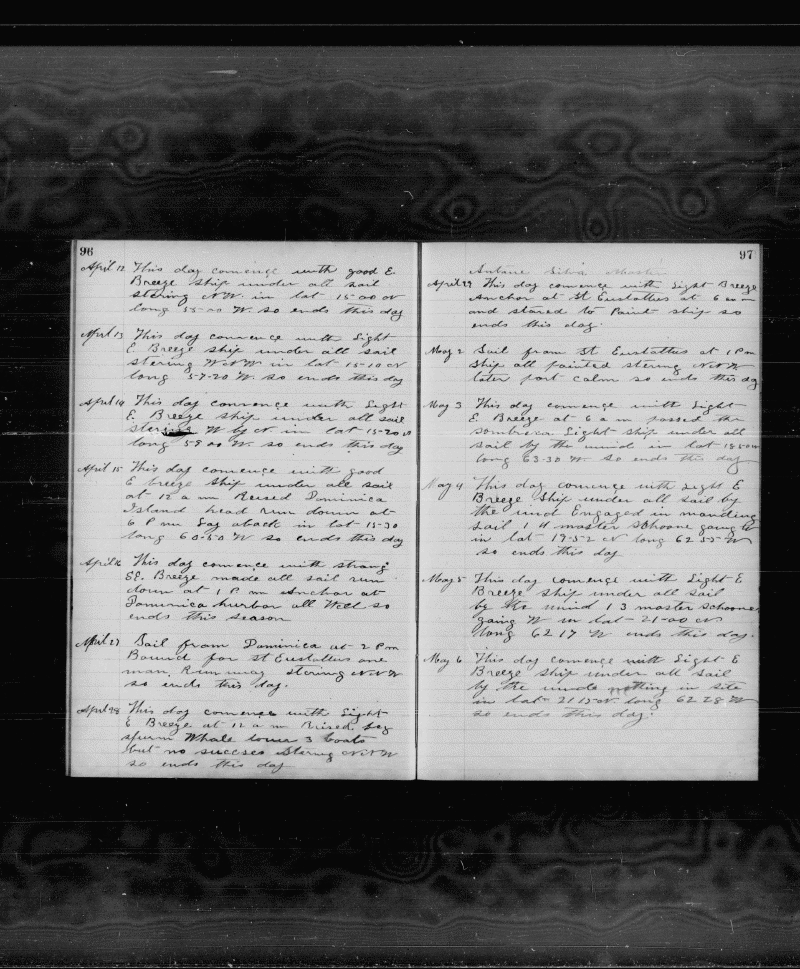 96
April 12 This day comence with good E.
Breeze ship under all sail
stering N.W. in lat 15-00 N
long 55-00 W. so ends this day
April 13 This day comence with Light
E. Breeze ship under all sail
stering W N W in lat 15-10 N
long 57-20 W. so ends this day
April 14 This day comence with Light
E. Breeze ship under all sail
stering W by N in lat 15-20 N
long 59 00 W. so ends this day
April 15 This day comence with good
E breeze ship under all sail
at 12 a m Reised Dominica
Island head run down at
6 P m Lay aback in lat 15-30
long 60-50 W so ends this day
April 16 This day comence with strang
SE. Breeze made all sail run
down at 1 P. m Anchor at
Dominica hurbor all Well so
ends this season
April 27 Sail from Dominica at 2 Pm
Bound for St Eustattius one
man Runaway stering N N W
so ends this day.
April 28 This day comence with Light
E Breeze at 12 a m Reised
spurm Whale lower 3 boats
but no succses Stering N N W
so ends this day
97
Antone Silva Master
April 29 This day comence with Light Breeze
Anchor at St Eustattius at 6 am
and stared to Paint ship so
ends this day.
May 2 Sail from St Eustattius at 1 Pm
Ship all painted stering N N W
later part calm so ends this day
May 3 This day comence with Light
E Breeze at 6 a m passed the
sombrera Light ship under all
sail by the wind in lat 18 50 N
long 63-30 W. so ends the day
May 4 This day comence with Light E
Breeze Ship under all sail by
the wind Engaged in manding
sail 1 4 master schoone going
in lat 19-52 N long 62 55 W
so ends this day
May 5 This day comence with Light E
Breeze ship under all sail
by the wind 1 3 master schooner
going W in lat 21-00 N
long 62 17 W ends this day.
May 6 This day comence with Light E
Breeze ship under all sail
by the winds notting in site
in lat 21 15 N long 62 28 W
so ends this day.